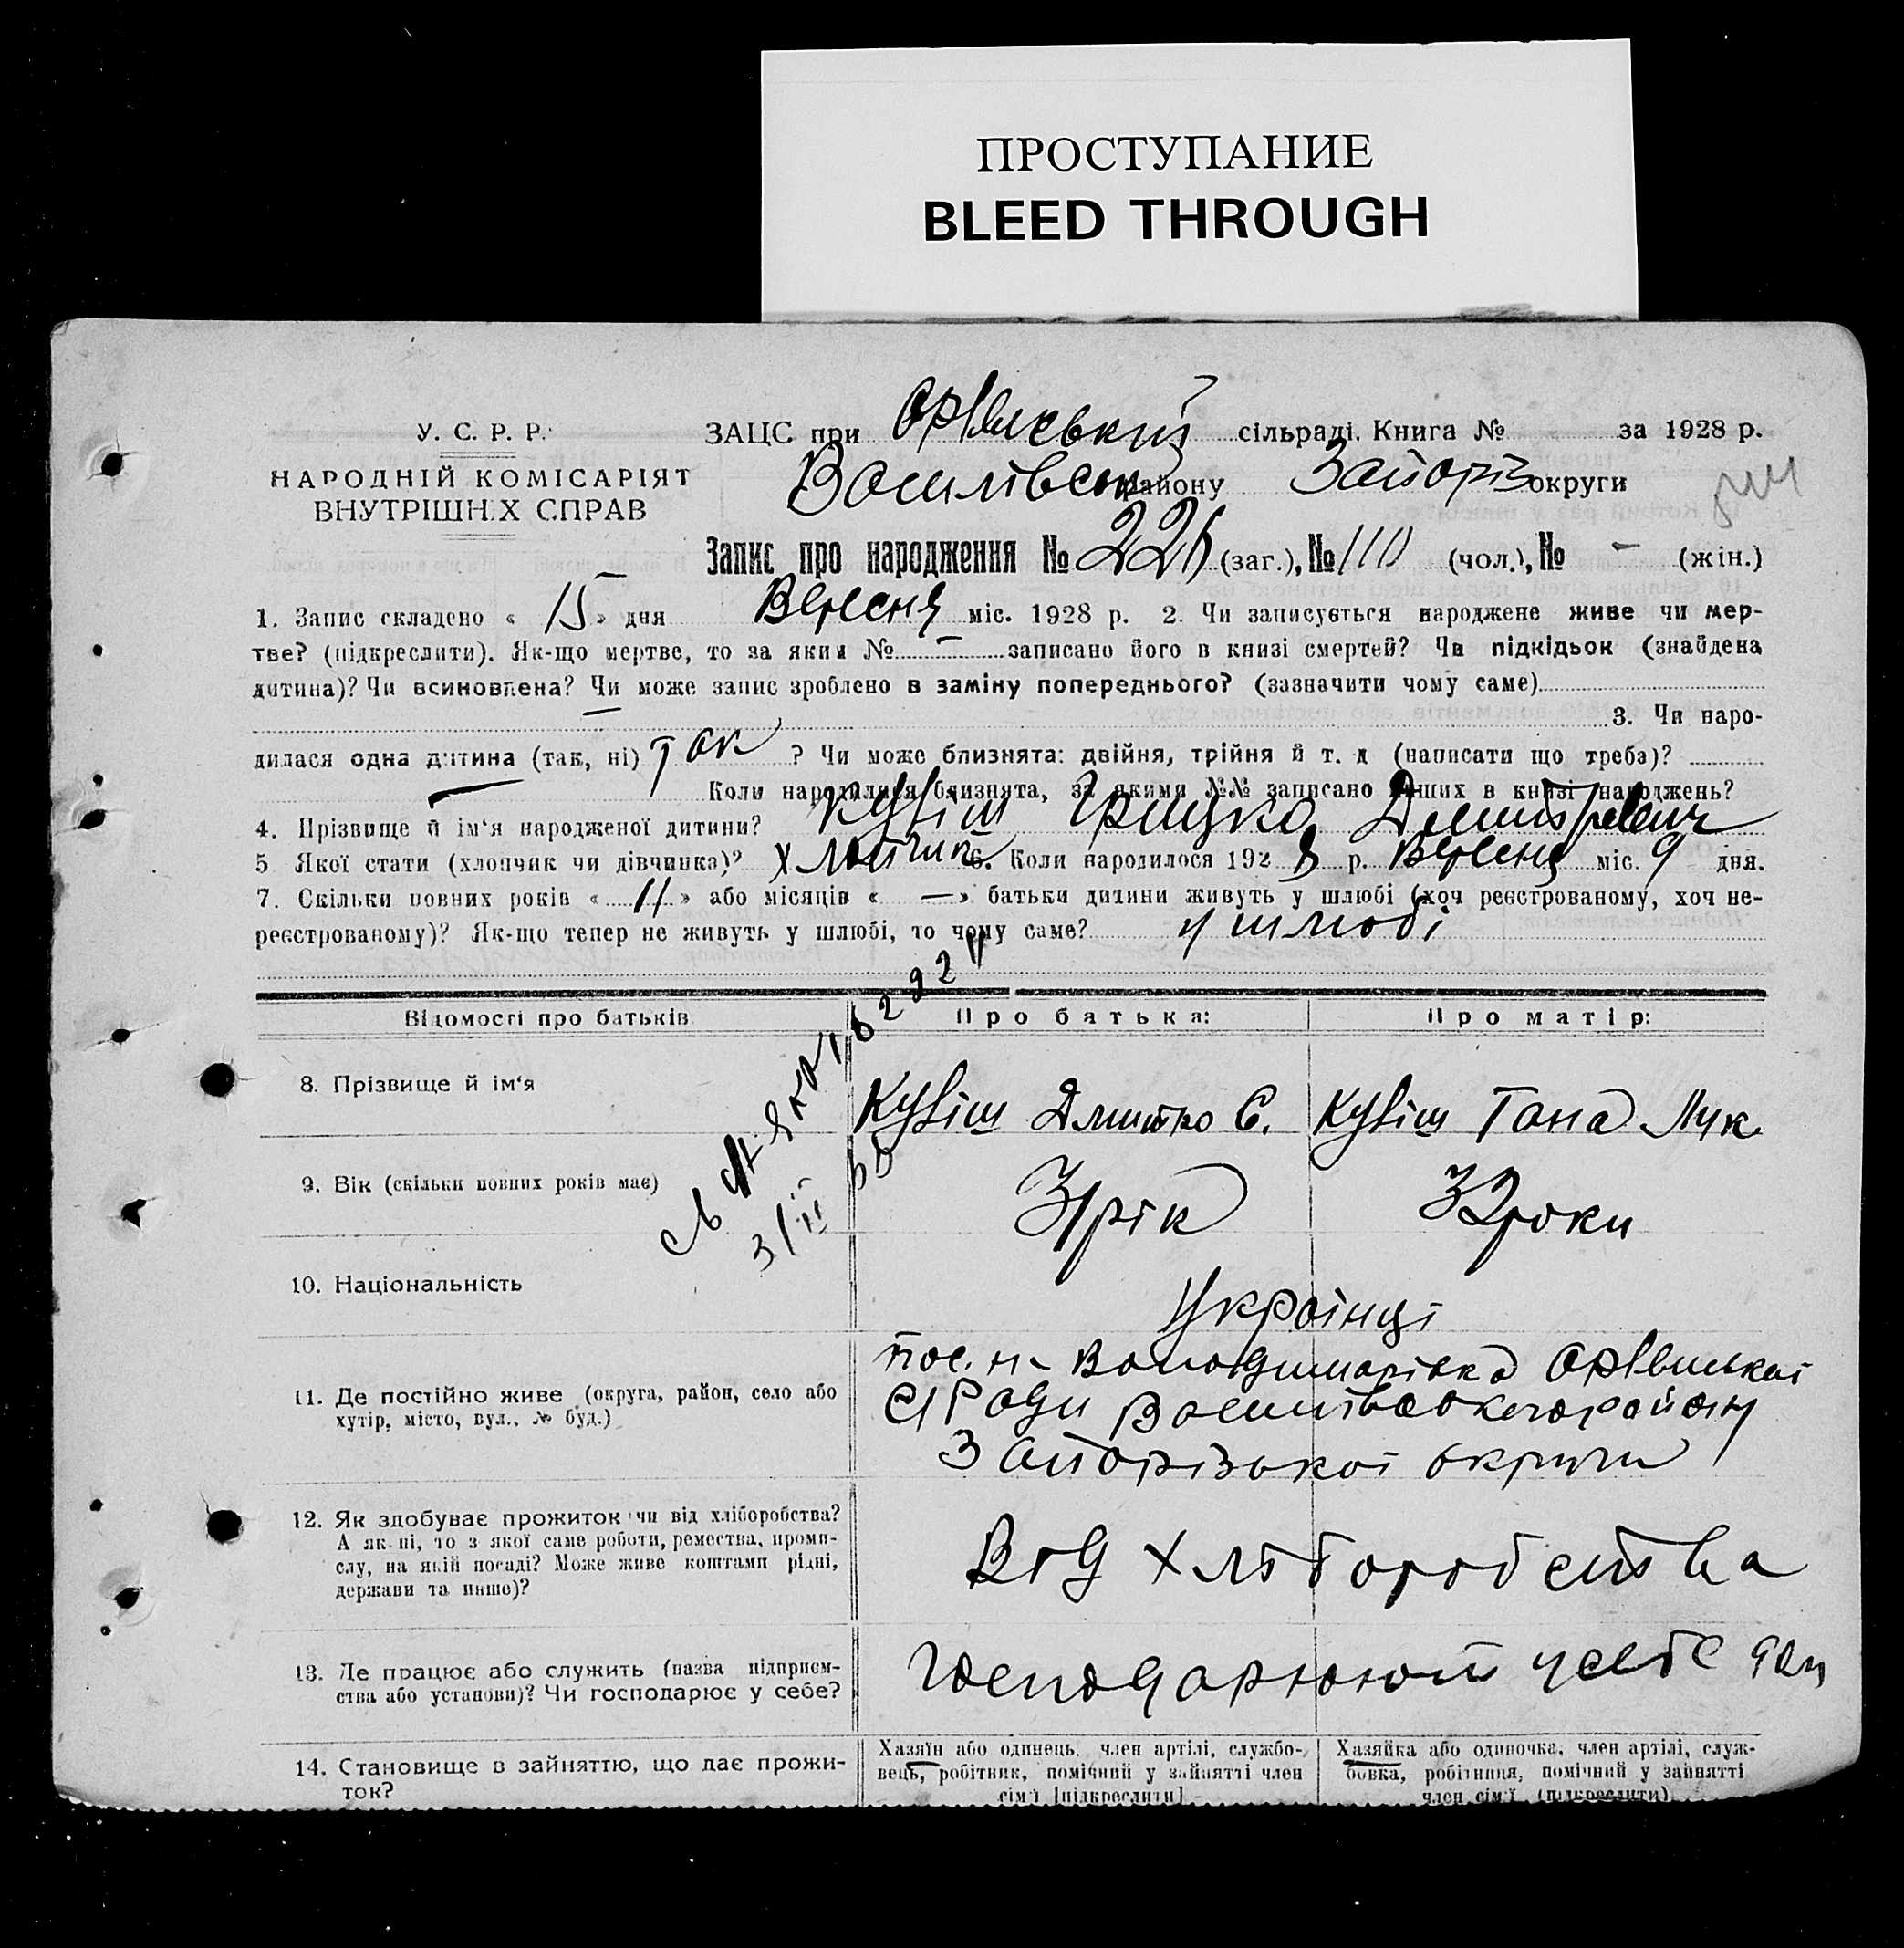 ПРОСТУПАНИЕ
BLEED THROUGH
У. С. Р. Р.
НАРОДНІЙ КОМІСАРІЯТ
ВНУТРІШНІХ СПРАВ
ЗАЦС при сільраді. Книга № за 1928 р.
Василівськ району Запоріз округи
Запис про народження № 226 (заг.), № 110 (чол.), № – (жін.)
1. Запис складено « 15 » дня Вересня міс. 1928 р. 2. Чи записується народжене живе чи мер-
тве? (підкреслити). Як-що мертве, то за яким № – записано його в книзі смертей? Чи підкідьок (знайдена
дитина)? Чи всиновлена? Чи може запис зроблено в заміну попереднього? (зазначити чому саме)
– 3. Чи наро-
дилася одна дитина (так, ні) так ? Чи може близнята: двійня, трійня й т. д (написати що треба)?
— Коли народилися близнята, за якими №№ записано инших в книзі народжень?
4. Прізвище й ім'я народженої дитини? Кувіш Грицко Дмитрович
5 Якої стати (хлопчик чи дівчинка)? хлопчик 6. Коли народилося 192 8 р. Вересня міс. 9 дня.
7. Скільки повних років « 11 » або місяців « — » батьки дитини живуть у шлюбі (хоч реєстрованому, хоч не-
реєстрованому)? Як-що тепер не живуть у шлюбі, то чому саме? у шлюбі
Відомості про батьків
Про батька:
Про матір:
8. Прізвище й ім'я
Кувіш Дмитро Є.
Кувіш Гана Лук.
9. Вік (скільки повних років має)
31 рік
32 роки
10. Національність
Українці
11. Де постійно живе (округа, район, село або
хутір, місто, вул., № буд.)
пос. Володимирівка
с/Ради Василівського району
Запорізької округи
12. Як здобуває прожиток чи від хліборобства?
А як-ні, то з якої саме роботи, ремества, проми-
слу, на якій посаді? Може живе коштами рідні,
держави та инше)?
Від хліборобства
13. Де працює або служить (назва підприєм-
ства або установи)? Чи господарює у себе?
Господарюють у себе
14. Становище в зайняттю, що дає прожи-
ток?
Хазяїн або одинець, член артілі, службо-
вець, робітник, помічний у зайнятті член
сім'ї [підкреслити]
Хазяйка або одиночка, член артілі, служ-
бовка, робітниця, помічний у зайнятті
член сім'ї (підкреслити)